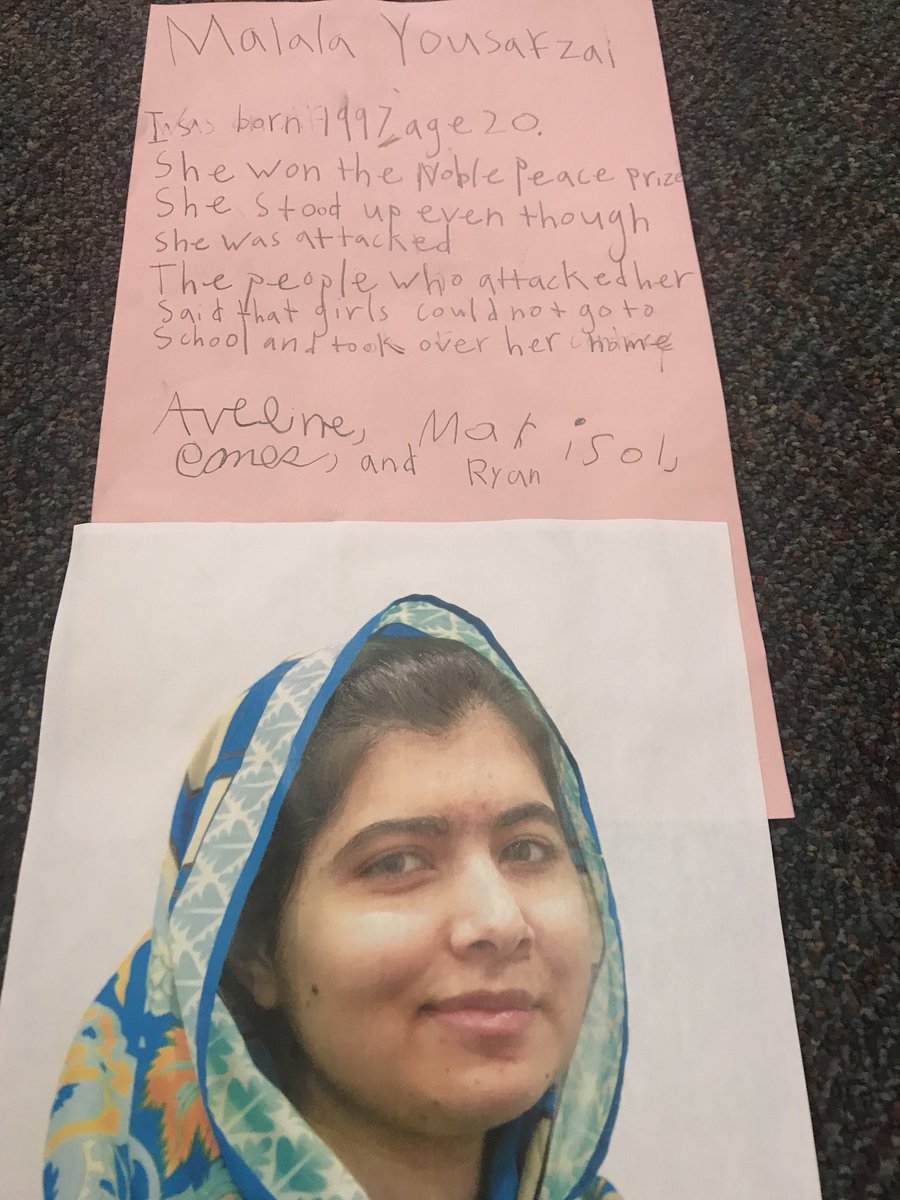 Malala Yousafzai
born 1997 age 20.
She won the Noble Peace prize
She stood up even though
she was attacked
The people who attacked her
Said that girls could not go to
School and took over her home
Aveline, Marisol,
and Ryan